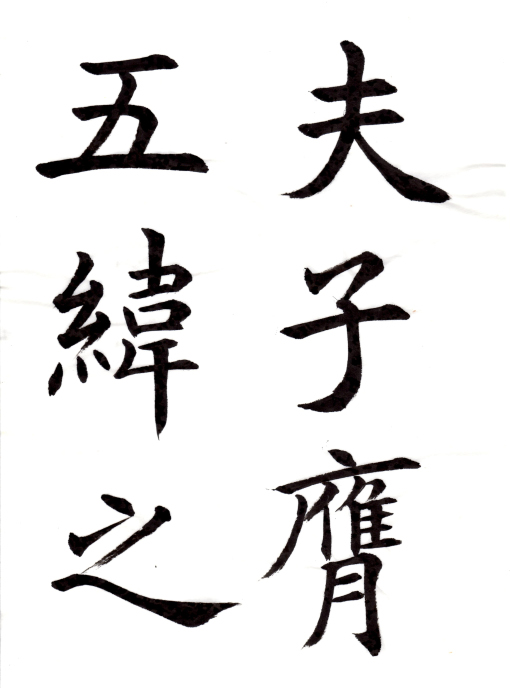 夫子膺
五緯之